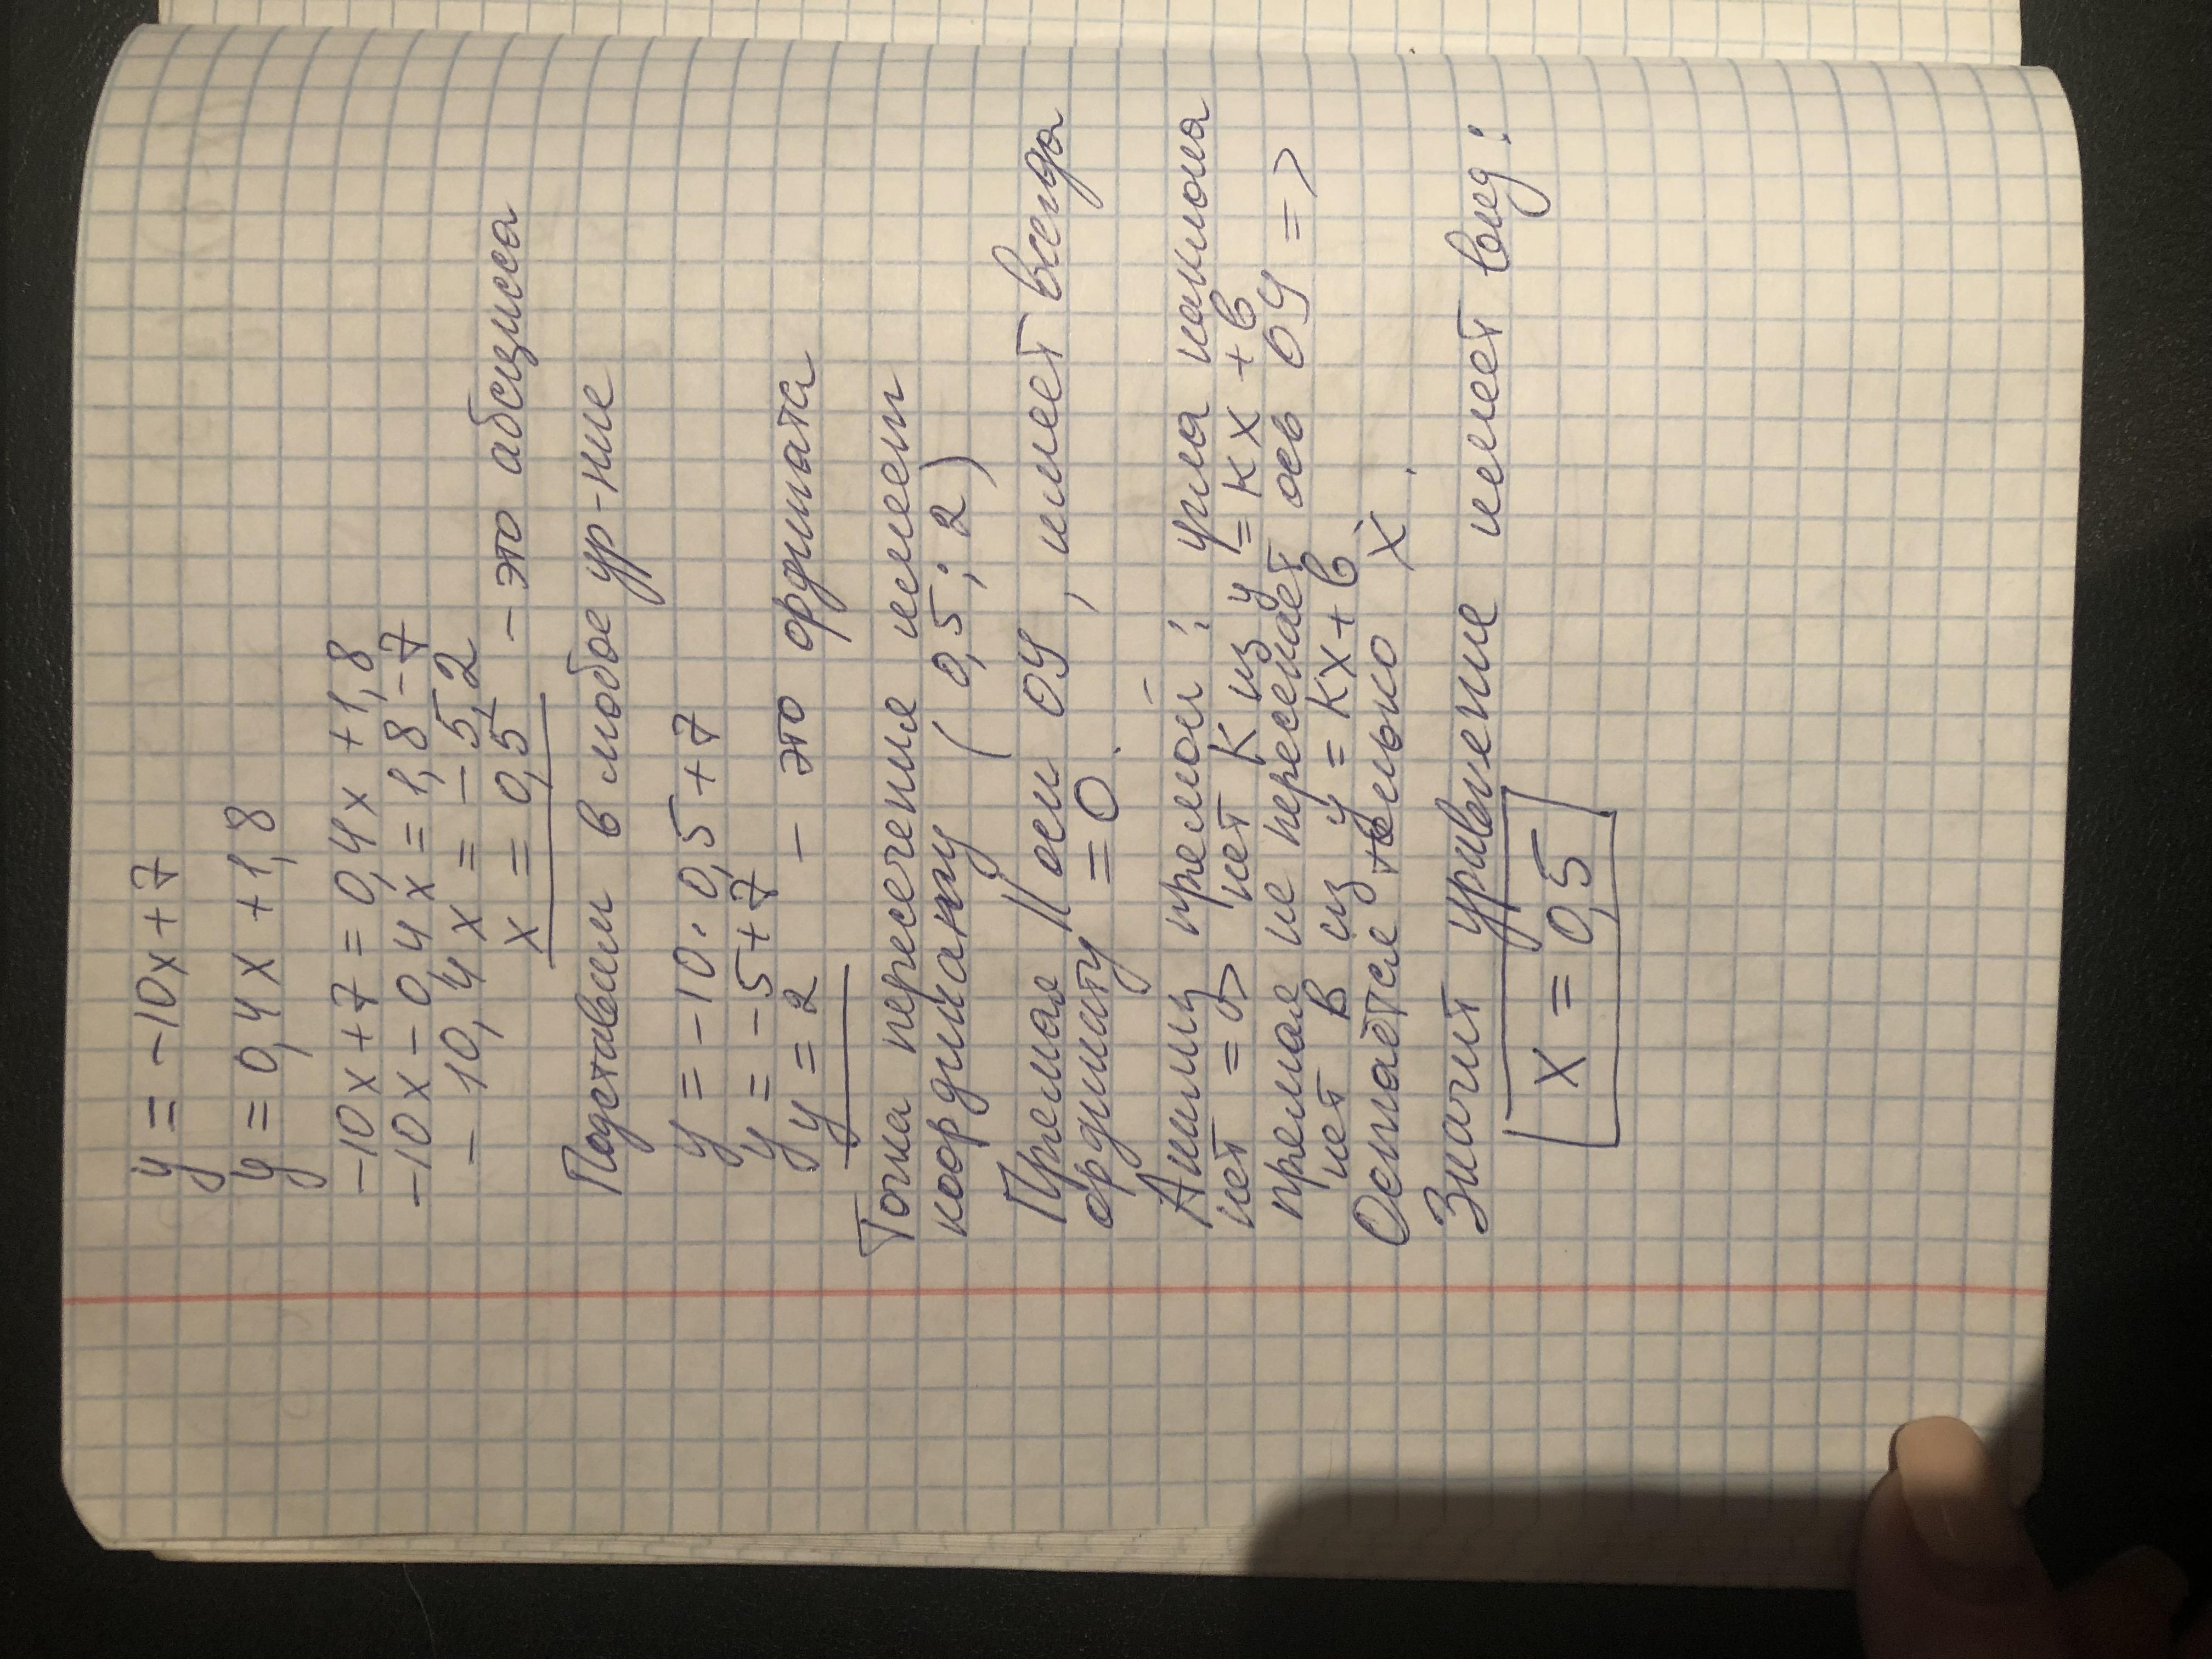 y = -10x + 7
y = 0,4x + 1,8
-10x + 7 = 0,4x + 1,8
-10x - 0,4x = 1,8 - 7
- 10,4x = - 5,2
x = 0,5 - это абсцисса
Подставим в любое ур-ние
y = -10 · 0,5 + 7
y = -5 + 7
y = 2 - это ордината
Точка пересечения имеет
координату (0,5; 2)
Прямая || оси ОУ, имеет всегда
ординату = 0.
Анализ прямой: угла наклона
нет => нет К из y = кx + в
прямая не пересекает ось ОУ =>
нет в из y = кx + в
Остаётся только х.
Значит уравнение имеет вид:
x = 0,5